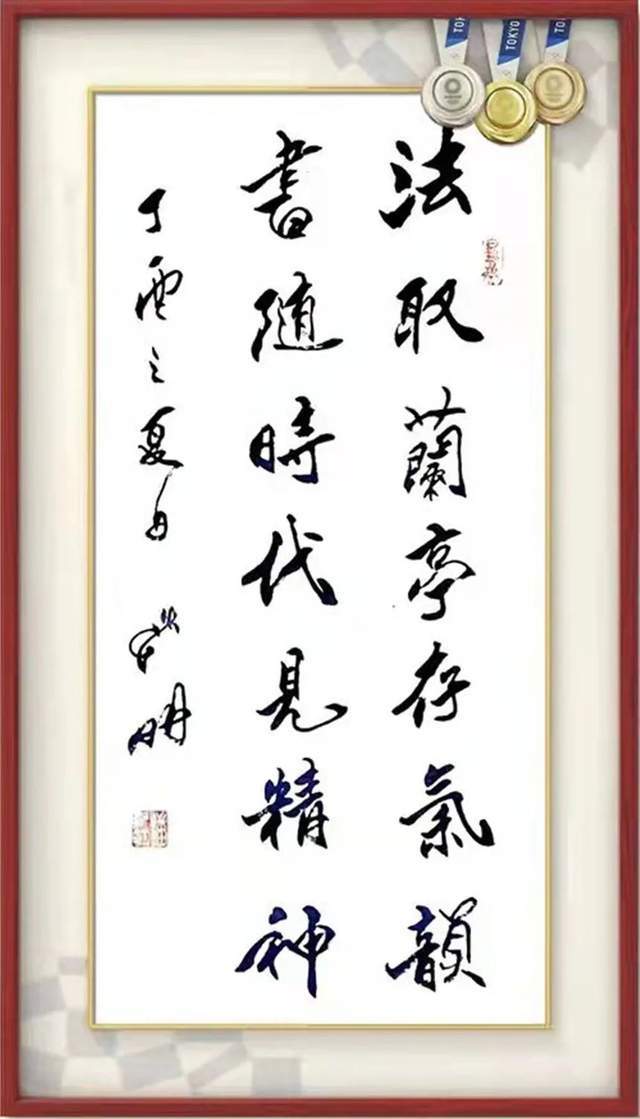 法取蘭亭存氣韻
書隨時代見精神
丁酉之夏月
明
TOKYO
TOKYO
TOKYO